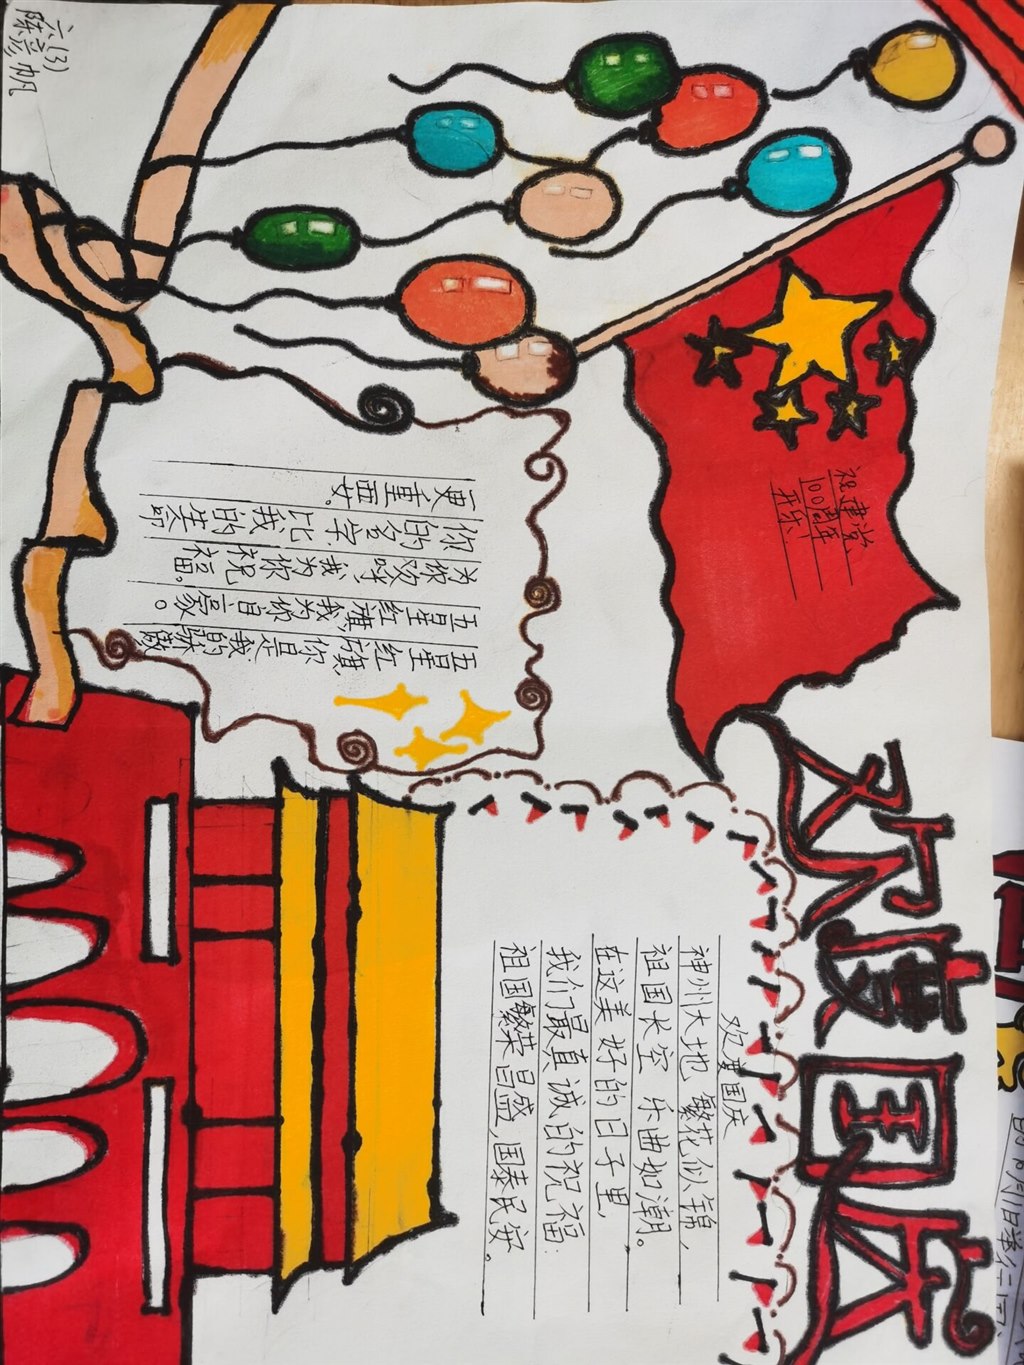 欢度国庆
祝建党
100周年
开乐
五星红旗,你是我的骄傲
五星红旗,我为你自豪。
为你欢呼,我为你祝福。
你的名字比我的生命
更重要。
欢度国庆
神州大地 繁花似锦,
祖国长空 乐曲如潮。
在这美好的日子里,
我们最真诚的祝福:
祖国繁荣昌盛,国泰民安。
六(3)
陈彦帆